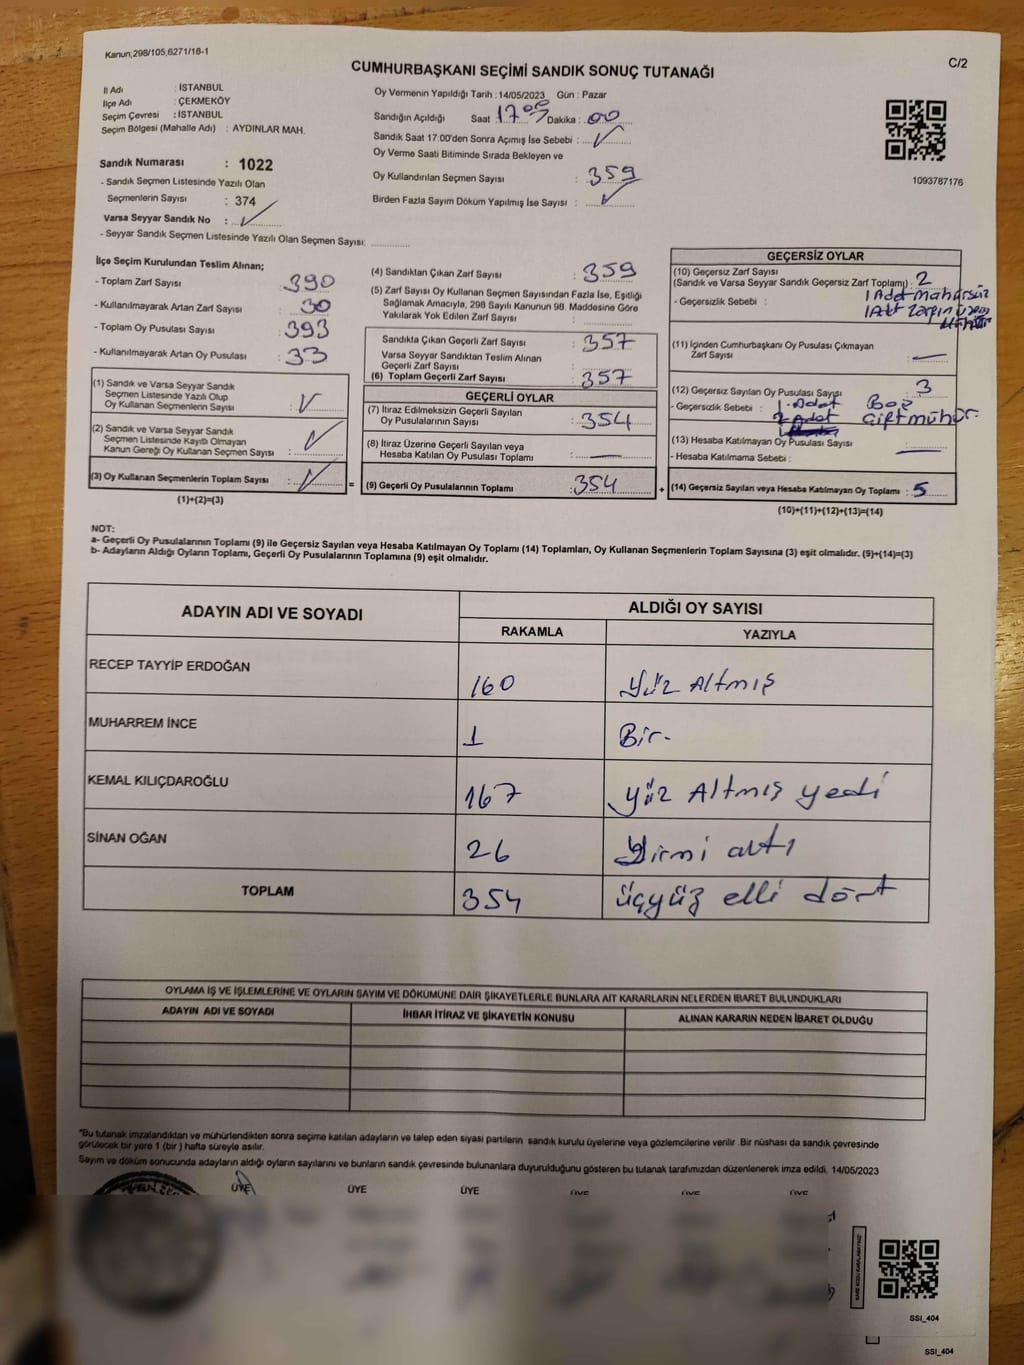 Kanun;298/105,6271/18-1
C/2
CUMHURBAŞKANI SEÇİMİ SANDIK SONUÇ TUTANAĞI
İl Adı : İSTANBUL
İlçe Adı : ÇEKMEKÖY
Seçim Çevresi : İSTANBUL
Seçim Bölgesi (Mahalle Adı) : AYDINLAR MAH.
Oy Vermenin Yapıldığı Tarih :14/05/2023 Gün : Pazar
Sandığın Açıldığı Saat :17 Dakika :00
Sandık Saat 17:00'den Sonra Açımış İse Sebebi :
Oy Verme Saati Bitiminde Sırada Bekleyen ve
Oy Kullandırılan Seçmen Sayısı : 359
Birden Fazla Sayım Döküm Yapılmış İse Sayısı :
1093787176
Sandık Numarası : 1022
- Sandık Seçmen Listesinde Yazılı Olan
Seçmenlerin Sayısı : 374
Varsa Seyyar Sandık No :
- Seyyar Sandık Seçmen Listesinde Yazılı Olan Seçmen Sayısı:
İlçe Seçim Kurulundan Teslim Alınan;
- Toplam Zarf Sayısı : 390
- Kullanılmayarak Artan Zarf Sayısı : 30
- Toplam Oy Pusulası Sayısı : 393
- Kullanılmayarak Artan Oy Pusulası : 33
(1) Sandık ve Varsa Seyyar Sandık
Seçmen Listesinde Yazılı Olup
Oy Kullanan Seçmenlerin Sayısı :
(2) Sandık ve Varsa Seyyar Sandık
Seçmen Listesinde Kayıtlı Olmayan
Kanun Gereği Oy Kullanan Seçmen Sayısı :
(3) Oy Kullanan Seçmenlerin Toplam Sayısı :
(1)+(2)=(3)
(4) Sandıktan Çıkan Zarf Sayısı : 359
(5) Zarf Sayısı Oy Kullanan Seçmen Sayısından Fazla İse, Eşitliği
Sağlamak Amacıyla, 298 Sayılı Kanunun 98. Maddesine Göre
Yakılarak Yok Edilen Zarf Sayısı :
Sandıkta Çıkan Geçerli Zarf Sayısı : 357
Varsa Seyyar Sandıktan Teslim Alınan
Geçerli Zarf Sayısı :
(6) Toplam Geçerli Zarf Sayısı : 357
GEÇERLİ OYLAR
(7) İtiraz Edilmeksizin Geçerli Sayılan
Oy Pusulalarının Sayısı : 354
(8) İtiraz Üzerine Geçerli Sayılan veya
Hesaba Katılan Oy Pusulası Toplamı : —
= (9) Geçerli Oy Pusulalarının Toplamı :354
GEÇERSİZ OYLAR
(10) Geçersiz Zarf Sayısı
(Sandık ve Varsa Seyyar Sandık Geçersiz Zarf Toplamı) : 2
- Geçersizlik Sebebi : 1 Adet Mahürsüz
1 Adet Zarfın üzeri
(11) İçinden Cumhurbaşkanı Oy Pusulası Çıkmayan
Zarf Sayısı : —
(12) Geçersiz Sayılan Oy Pusulası Sayısı : 3
- Geçersizlik Sebebi : 1 Adet Boş
2 Adet Çiftmühür.
(13) Hesaba Katılmayan Oy Pusulası Sayısı : —
- Hesaba Katılmama Sebebi :
+ (14) Geçersiz Sayılan veya Hesaba Katılmayan Oy Toplamı : 5
(10)+(11)+(12)+(13)=(14)
NOT:
a- Geçerli Oy Pusulalarının Toplamı (9) ile Geçersiz Sayılan veya Hesaba Katılmayan Oy Toplamı (14) Toplamları, Oy Kullanan Seçmenlerin Toplam Sayısına (3) eşit olmalıdır. (9)+(14)=(3)
b- Adayların Aldığı Oyların Toplamı, Geçerli Oy Pusulalarının Toplamına (9) eşit olmalıdır.
ADAYIN ADI VE SOYADI
ALDIĞI OY SAYISI
RAKAMLA YAZIYLA
RECEP TAYYİP ERDOĞAN 160 Yüz Altmış
MUHARREM İNCE 1 Bir.
KEMAL KILIÇDAROĞLU 167 yüz Altmış yedi
SİNAN OĞAN 26 Yirmi altı
TOPLAM 354 üçyüz elli dört
OYLAMA İŞ VE İŞLEMLERİNE VE OYLARIN SAYIM VE DÖKÜMÜNE DAİR ŞİKAYETLERLE BUNLARA AİT KARARLARIN NELERDEN İBARET BULUNDUKLARI
ADAYIN ADI VE SOYADI İHBAR İTİRAZ VE ŞİKAYETİN KONUSU ALINAN KARARIN NEDEN İBARET OLDUĞU
*Bu tutanak imzalandıktan ve mühürlendikten sonra seçime katılan adayların ve talep eden siyasi partilerin sandık kurulu üyelerine veya gözlemcilerine verilir .Bir nüshası da sandık çevresinde
görülecek bir yere 1 (bir ) hafta süreyle asılır.
Sayım ve döküm sonucunda adayların aldığı oyların sayılarını ve bunların sandık çevresinde bulunanlara duyurulduğunu gösteren bu tutanak tarafımızdan düzenlenerek imza edildi. 14/05/2023
ÜYE ÜYE ÜYE ÜYE ÜYE ÜYE
SSI_404
SSI_404